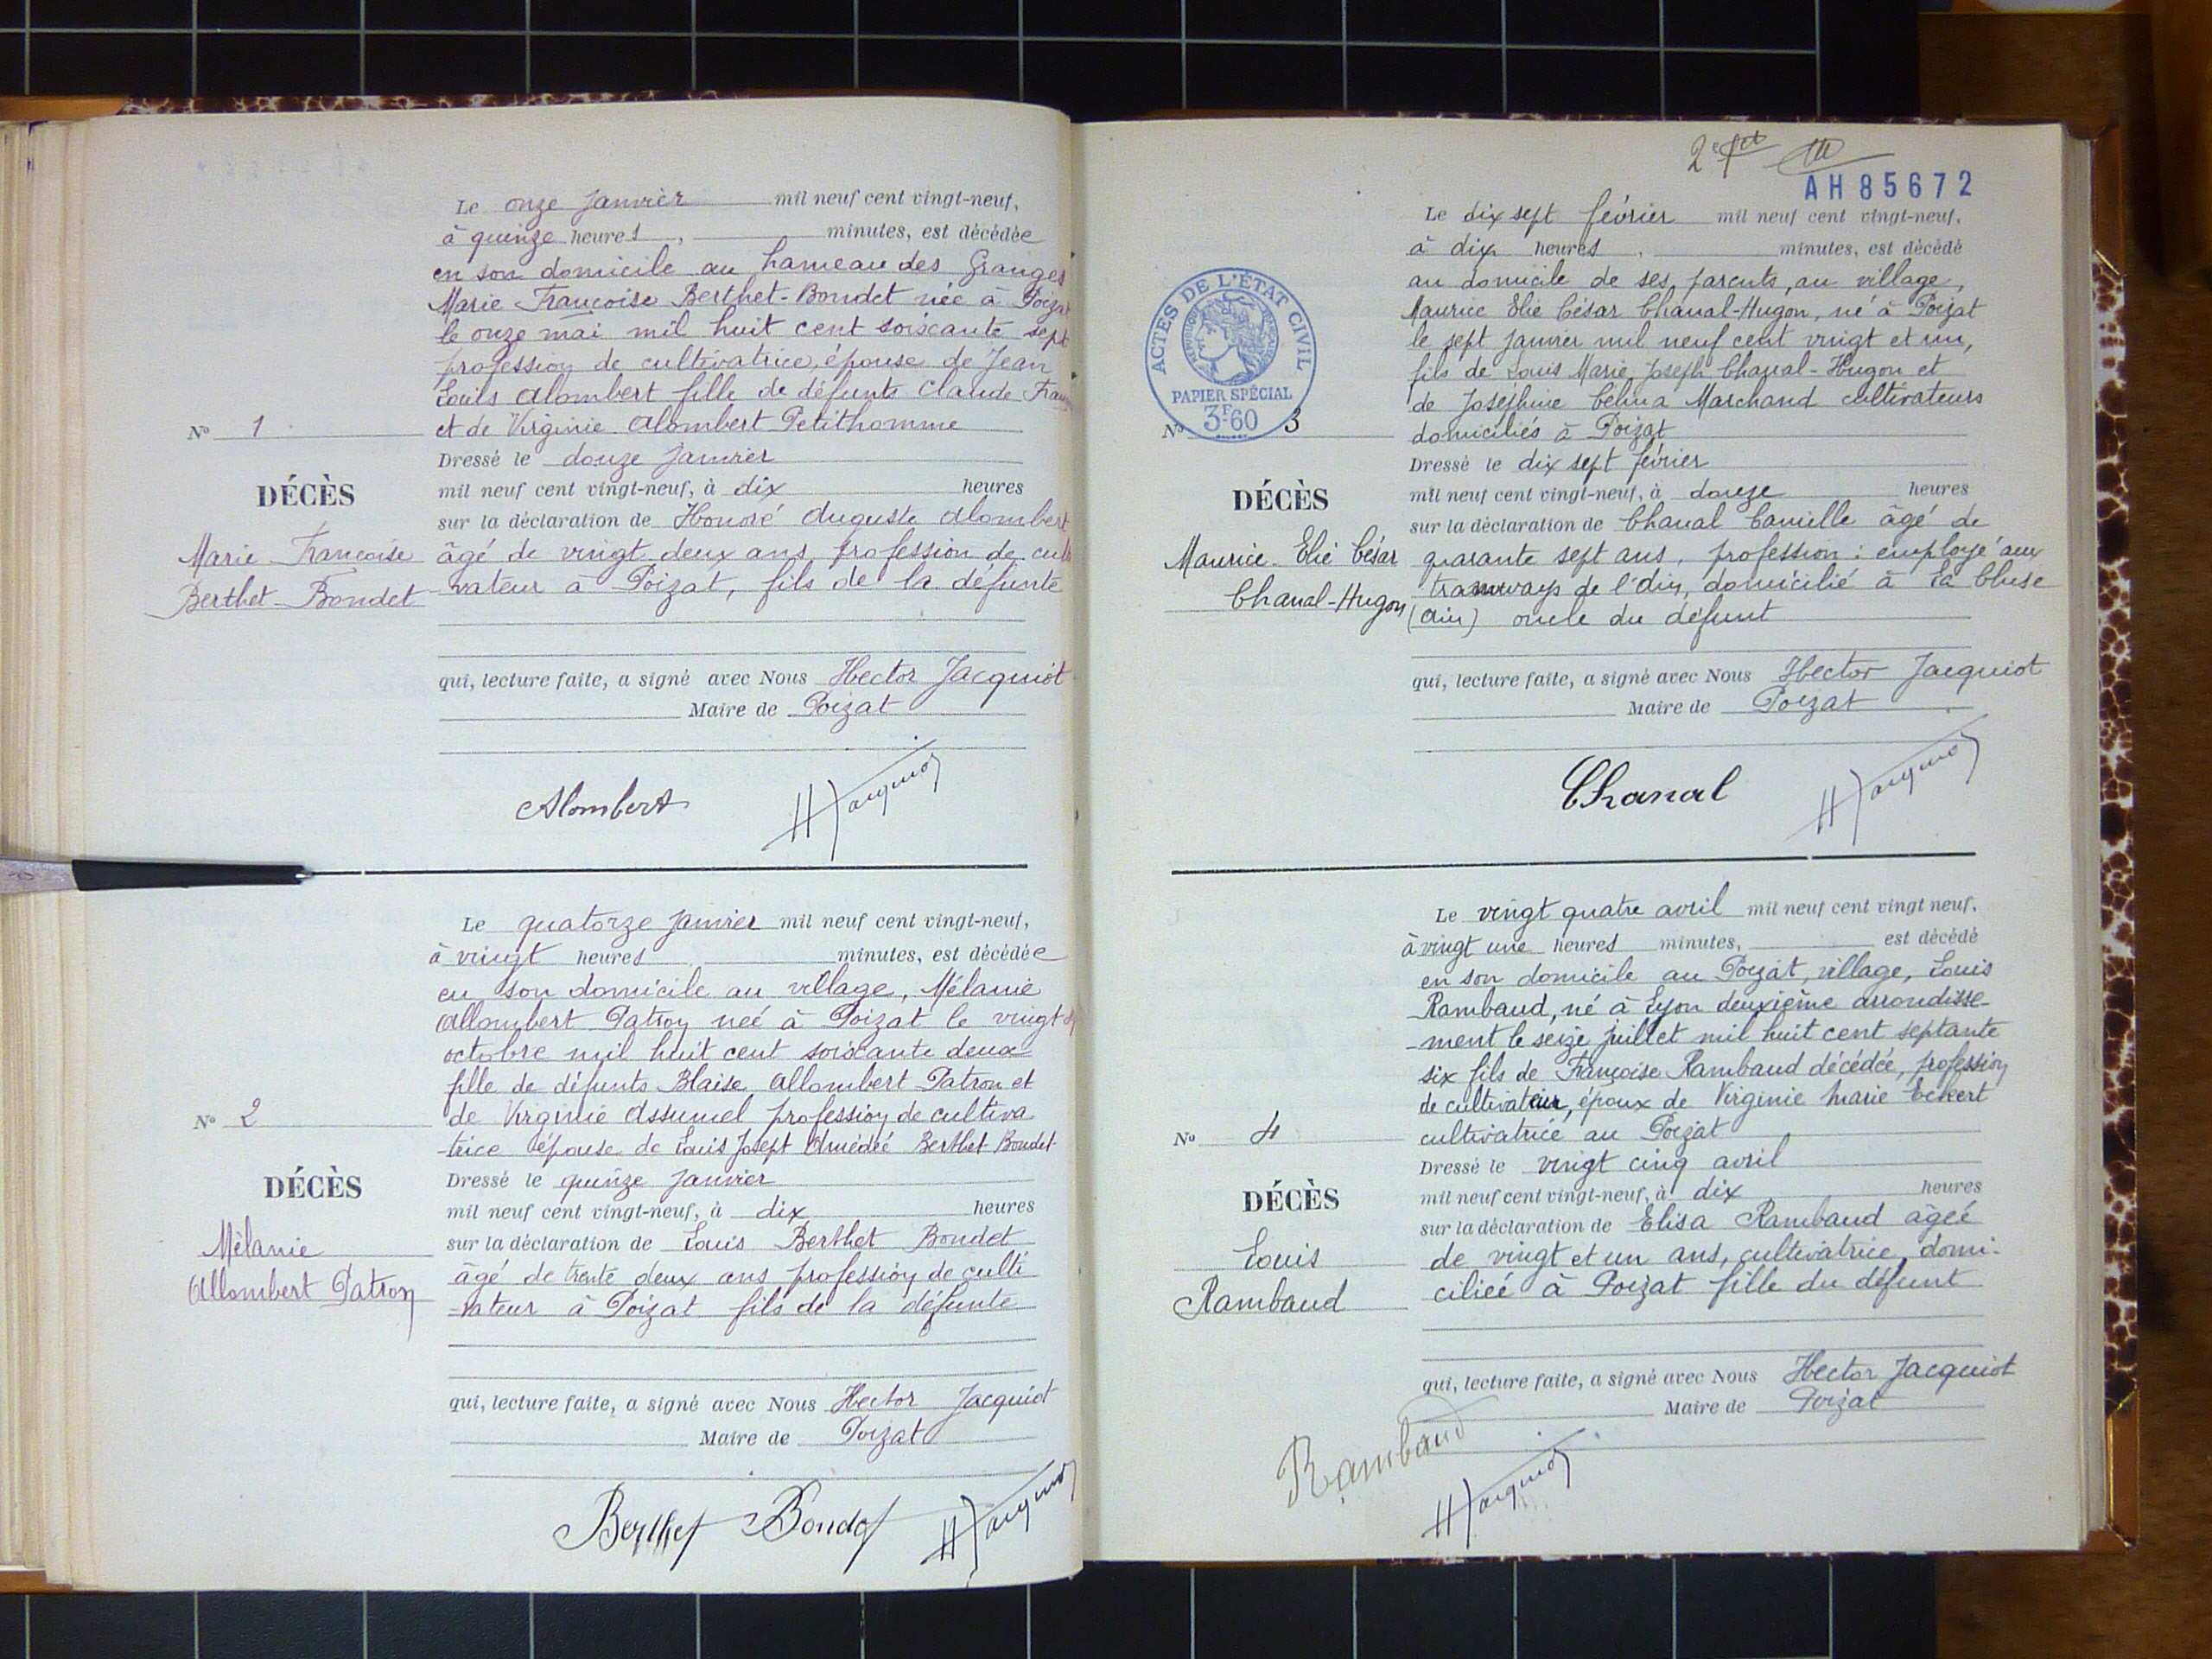 Le onze Janvier mil neuf cent vingt-neuf,
à quinze heures, minutes, est décédée
en son domicile au hameau des Granges
Marie Françoise Berthet-Bondet née à Poizat
le onze mai mil huit cent soixante sept
profession de cultivatrice, épouse de Jean
Louis Alombert fille de défunts Claude
et de Virginie Alombert Petithomme
Nº 1
Dressé le douze Janvier
mil neuf cent vingt-neuf, à dix heures
DÉCÈS
sur la déclaration de Honoré Auguste Alombert
Marie Françoise
âgé de vingt deux ans profession de culti
Berthet-Bondet
vateur à Poizat, fils de la défunte
qui, lecture faite, a signé avec Nous Hector Jacquiot
Maire de Poizat
Alombert
H Jacquiot
Le quatorze Janvier mil neuf cent vingt-neuf,
à vingt heures minutes, est décédée
en son domicile au village, Mélanie
Allombert Patron neé à Poizat le vingt
octobre mil huit cent soixante deux
fille de défunts Blaise Allombert Patron et
de Virginie Assumel profession de cultiva
Nº 2
-trice épouse de Louis Josept Amédée Berthet Bondet
Dressé le quinze Janvier
DÉCÈS
mil neuf cent vingt-neuf, à dix heures
Mélanie
sur la déclaration de Louis Berthet Bondet
Allombert Patron
âgé de trente deux ans profession de culti
-vateur à Poizat fils de la défunte
qui, lecture faite, a signé avec Nous Hector Jacquiot
Maire de Poizat
Berthet Bondet
H Jacquiot
AH85672
Le dix sept février mil neuf cent vingt-neuf,
à dix heures, minutes, est décédé
au domicile de ses parents, au village,
Maurice Elie César Chanal-Hugon, né à Poizat
le sept Janvier mil neuf cent vingt et un,
fils de Louis Marie Joseph Chanal-Hugon et
de Joséphine Célina Marchand cultivateurs
domiciliés à Poizat
ACTES DE L'ÉTAT CIVIL
PAPIER SPÉCIAL
3F60
Nº 3
Dressé le dix sept février
mil neuf cent vingt-neuf, à douze heures
DÉCÈS
sur la déclaration de Chanal Camille âgé de
Maurice Elie César
quarante sept ans, profession: employé aux
Chanal-Hugon
tramways de l'Ain, domicilié à La Cluse
(Ain) oncle du défunt
qui, lecture faite, a signé avec Nous Hector Jacquiot
Maire de Poizat
Chanal
H Jacquiot
Le vingt quatre avril mil neuf cent vingt neuf,
à vingt une heures minutes, est décédé
en son domicile au Poizat, village, Louis
Rambaud, né à Lyon deuxième arrondisse-
-ment le seize juillet mil huit cent septante
six fils de Françoise Rambaud décédée, profession
de cultivateur, époux de Virginie Marie Eckert
Nº 4
cultivatrice au Poizat
Dressé le vingt cinq avril
DÉCÈS
mil neuf cent vingt-neuf, à dix heures
sur la déclaration de Elisa Rambaud âgeé
Louis
de vingt et un ans, cultivatrice, domi-
Rambaud
ciliée à Poizat fille du défunt
qui, lecture faite, a signé avec Nous Hector Jacquiot
Maire de Poizat
Rambaud
H Jacquiot